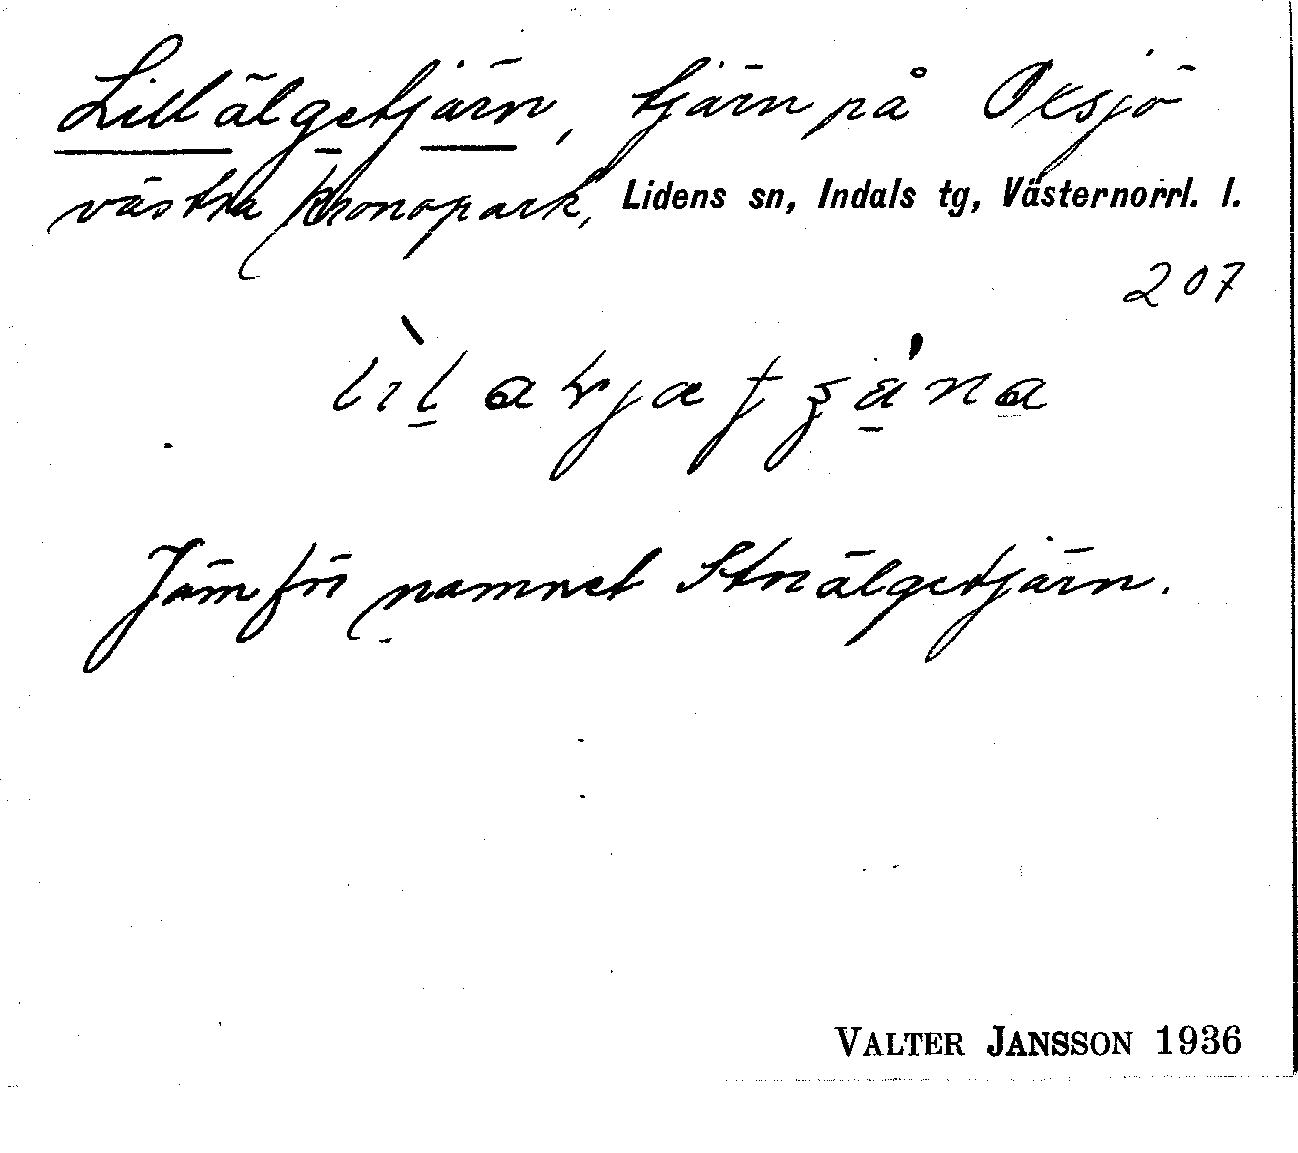 Lillälgetjärn, tjärn på Oxsjö
västra kronopark, Lidens sn, Indals tg, Västernorrl. l.
207
Jämför namnet Storälgetjärn.
VALTER JANSSON 1936